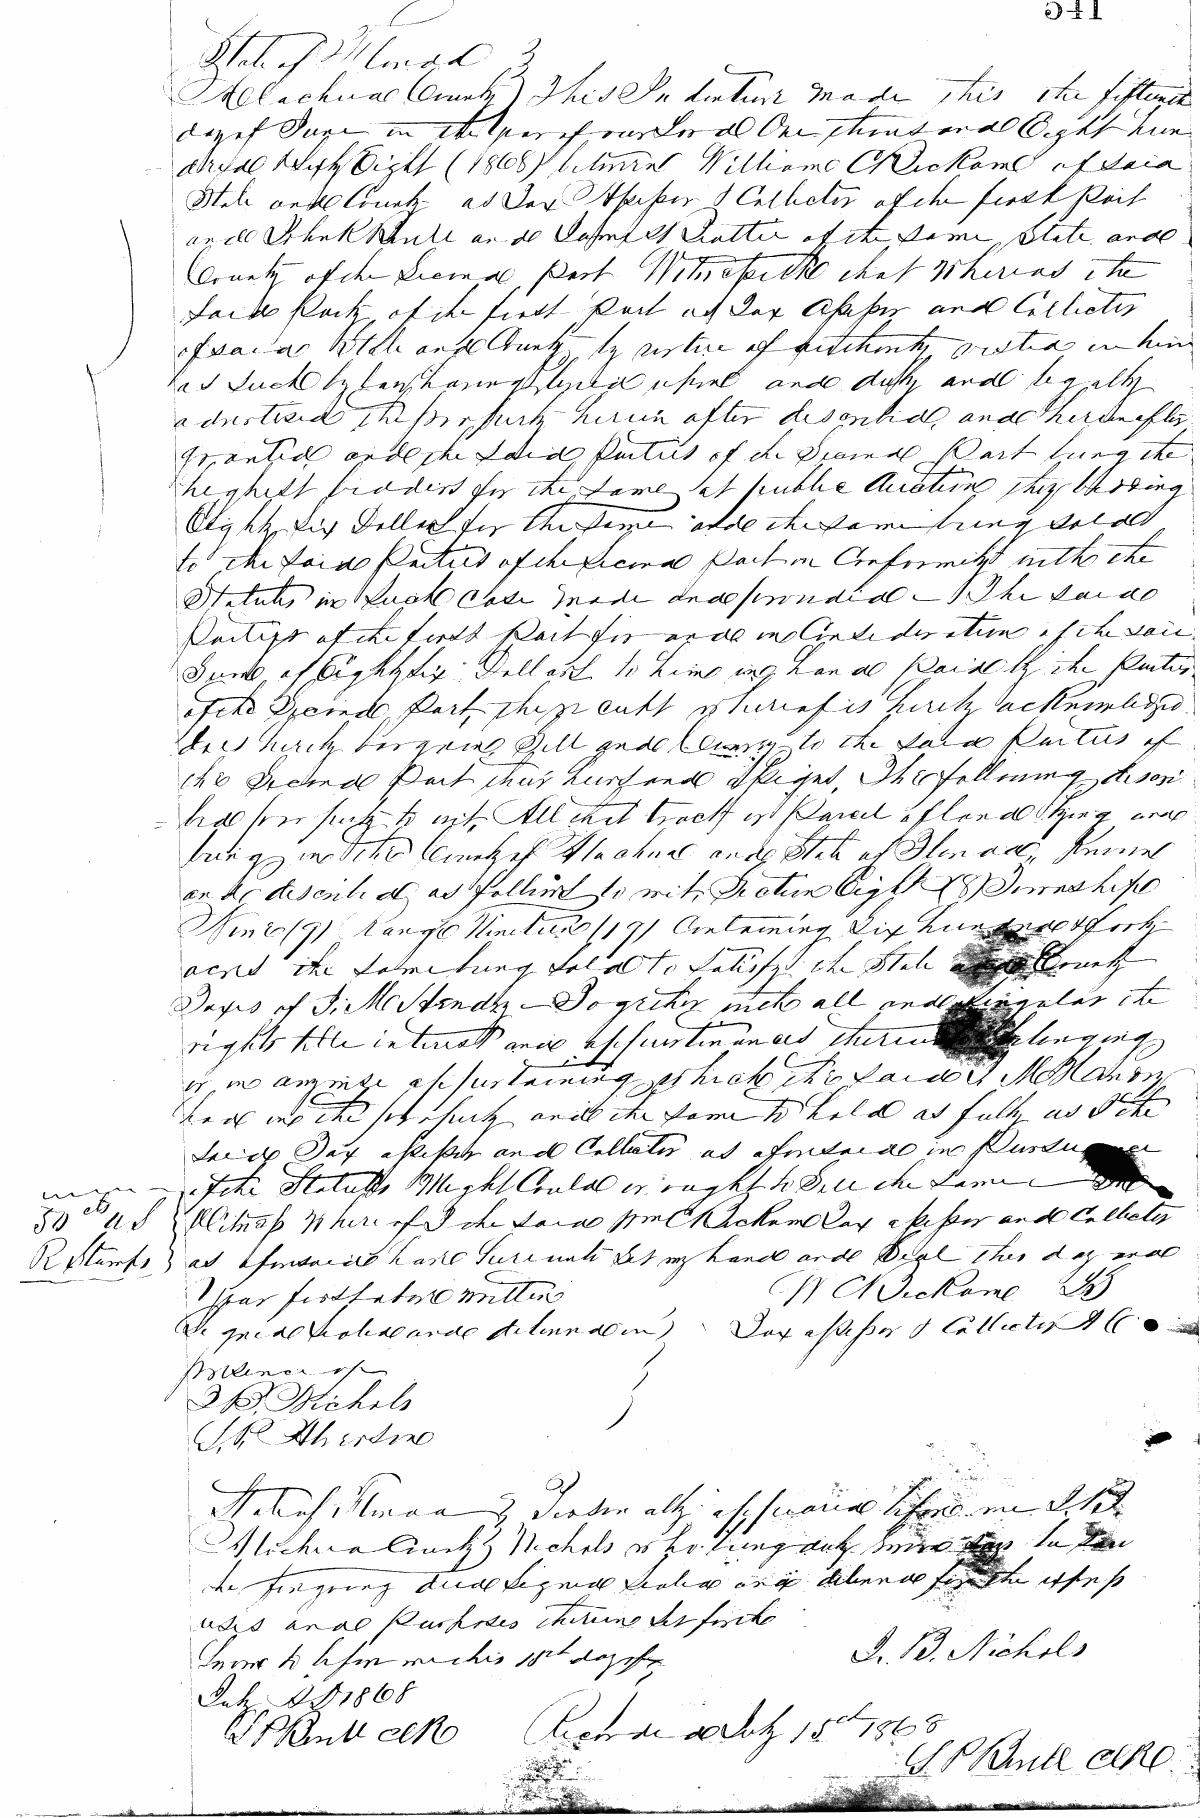 541
State of Florida }
Alachua County } This Indenture made this the fifteenth
day of June in the year of our Lord One thousand Eight hun
dred & Sixty Eight (1868) between William C Rickard of said
State and County as Tax Assessor & Collector of the first Part
and John R Rule and James H of the same State and
County of the Second Part Witnesseth that Whereas the
Said Party of the first Part as Tax Assessor and Collector
of said State and County by virtue of authority vested in him
as Such by law, having levied upon and duly and legally
advertised the property herein after described, and hereinafter
granted and the Said Parties of the Second Part being the
highest bidders for the same at public Auction they bidding
Eighty Six Dollars for the Same and the same being sold
to the Said Parties of the Second Part in Conformity with the
Statutes in Such Case made and provided – The said
Parties of the first Part for and in Consideration of the said
Sum of Eighty Six Dollars to him in hand Paid by the Parties
of the Second Part, the receipt whereof is hereby acknowledged
does hereby bargain Sell and Convey to the Said Parties of
the Second Part their heirs and assigns, The following descri
bed property to wit, All that tract or Parcel of land lying and
being in the County of Alachua and State of Florida, Known
and described as follows to wit, Section Eight (8) Township
Nine (9) Range Nineteen (19) Containing Six hundred & forty
acres the same being Sold to Satisfy the State and County
Taxes of J. M Hendry – Together with all and Singular the
rights title interest and appurtenances thereunto belonging
or in anywise appurtaining which the said J M Hendry
had in the property and the same to hold as fully as I the
Said Tax assessor and Collector as aforesaid in Pursuance
of the Statutes Might Could or ought to Sell the same – In
50 cts U S { Witness Whereof I the said Wm C Rickard Tax assessor and Collector
R Stamps } as aforesaid have hereunto Set my hand and Seal this day and
Year first above written W C Rickard LS
Signed Sealed and delivered in } Tax assessor & Collector A C
presence of
I B. Nichols
S. P.
State of Florida } Personally appeared before me I. B.
Alachua County } Nichols who being duly Sworn Says he Saw
the foregoing deed Signed Sealed and delivered for the express
uses and Purposes therein Set forth
Sworn to before me this 15th day of I. B. Nichols
July AD 1868
S P Rule Clk Recorded July 15th 1868
S P Rule Clk